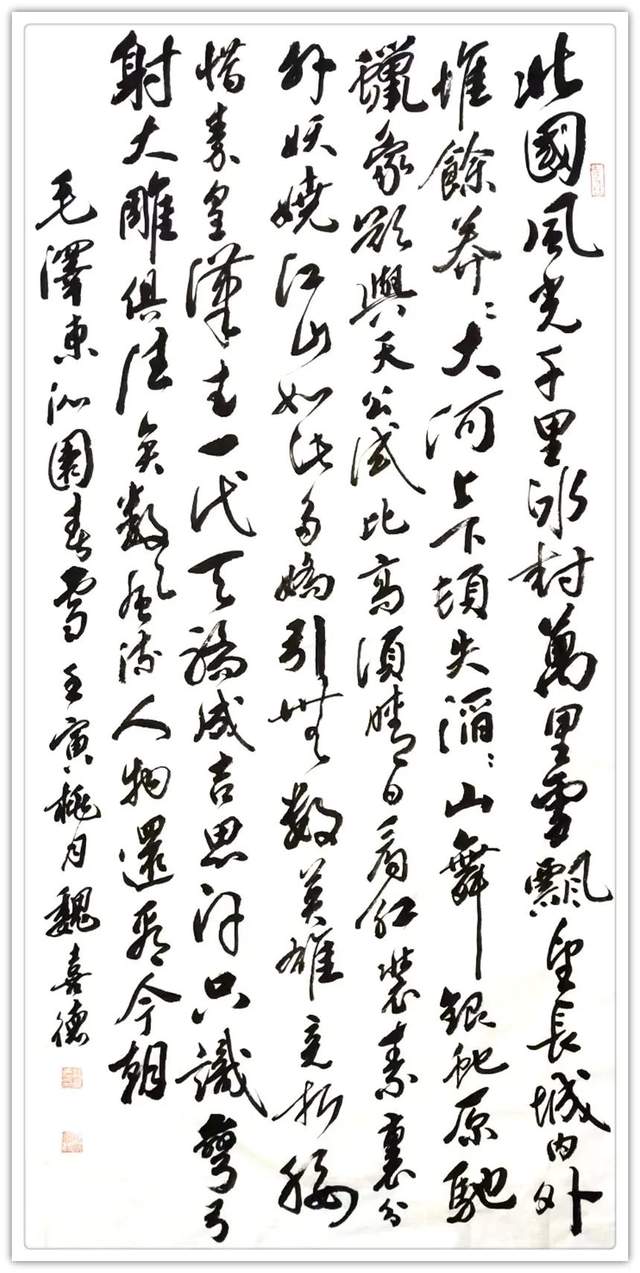 北國風光千里冰封萬里雪飄望長城内外
惟餘莽〻大河上下頓失滔〻山舞銀蛇原馳
蠟象欲與天公試比高須晴日看紅裝素裹分
外妖嬈江山如此多嬌引無數英雄竞折腰
惜秦皇漢武一代天驕成吉思汗只識彎弓
射大雕俱往矣數風流人物還看今朝
毛澤東沁園春雪壬寅桃月魏喜德